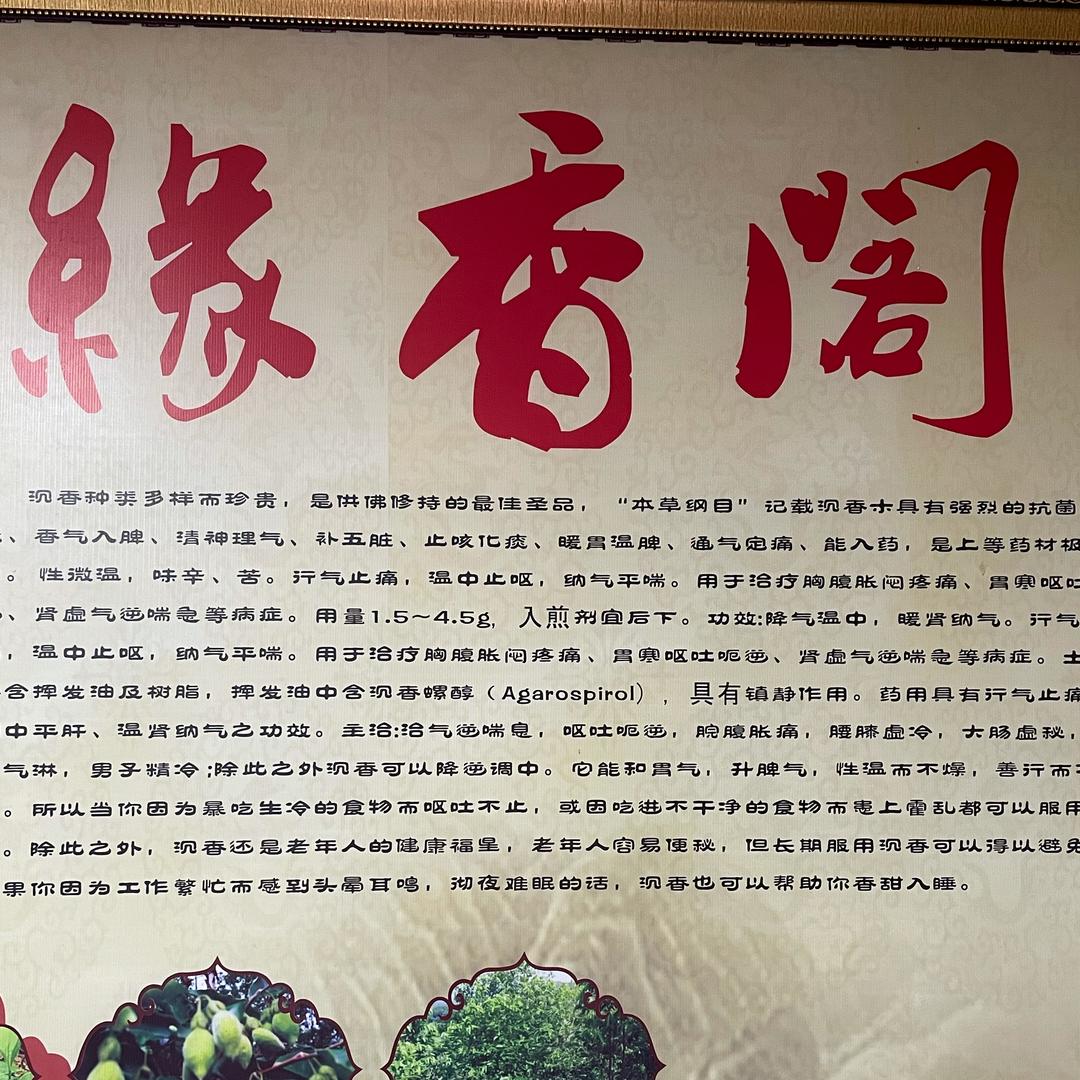 緣香閣
沉香种类多样而珍贵，是供佛修持的最佳圣品，“本草纲目”记载沉香木具有强烈的抗菌
、香气入脾、清神理气、补五脏、止咳化痰、暖胃温脾、通气定痛、能入药，是上等药材极
。性微温，味辛、苦。行气止痛，温中止呕，纳气平喘。用于治疗胸腹胀闷疼痛、胃寒呕吐
、肾虚气逆喘急等病症。用量1.5～4.5g，入煎剂宜后下。功效:降气温中，暖肾纳气。行气
，温中止呕，纳气平喘。用于治疗胸腹胀闷疼痛、胃寒呕吐呃逆、肾虚气逆喘急等病症。
含挥发油及树脂，挥发油中含沉香螺醇（Agarospirol），具有镇静作用。药用具有行气止痛
中平肝、温肾纳气之功效。主治:治气逆喘息，呕吐呃逆，脘腹胀痛，腰膝虚冷，大肠虚秘，
气淋，男子精冷;除此之外沉香可以降逆调中。它能和胃气，升脾气，性温而不燥，善行而不
。所以当你因为暴吃生冷的食物而呕吐不止，或因吃进不干净的食物而患上霍乱都可以服用
。除此之外，沉香还是老年人的健康福星，老年人容易便秘，但长期服用沉香可以得以避免
果你因为工作繁忙而感到头晕耳鸣，彻夜难眠的话，沉香也可以帮助你香甜入睡。